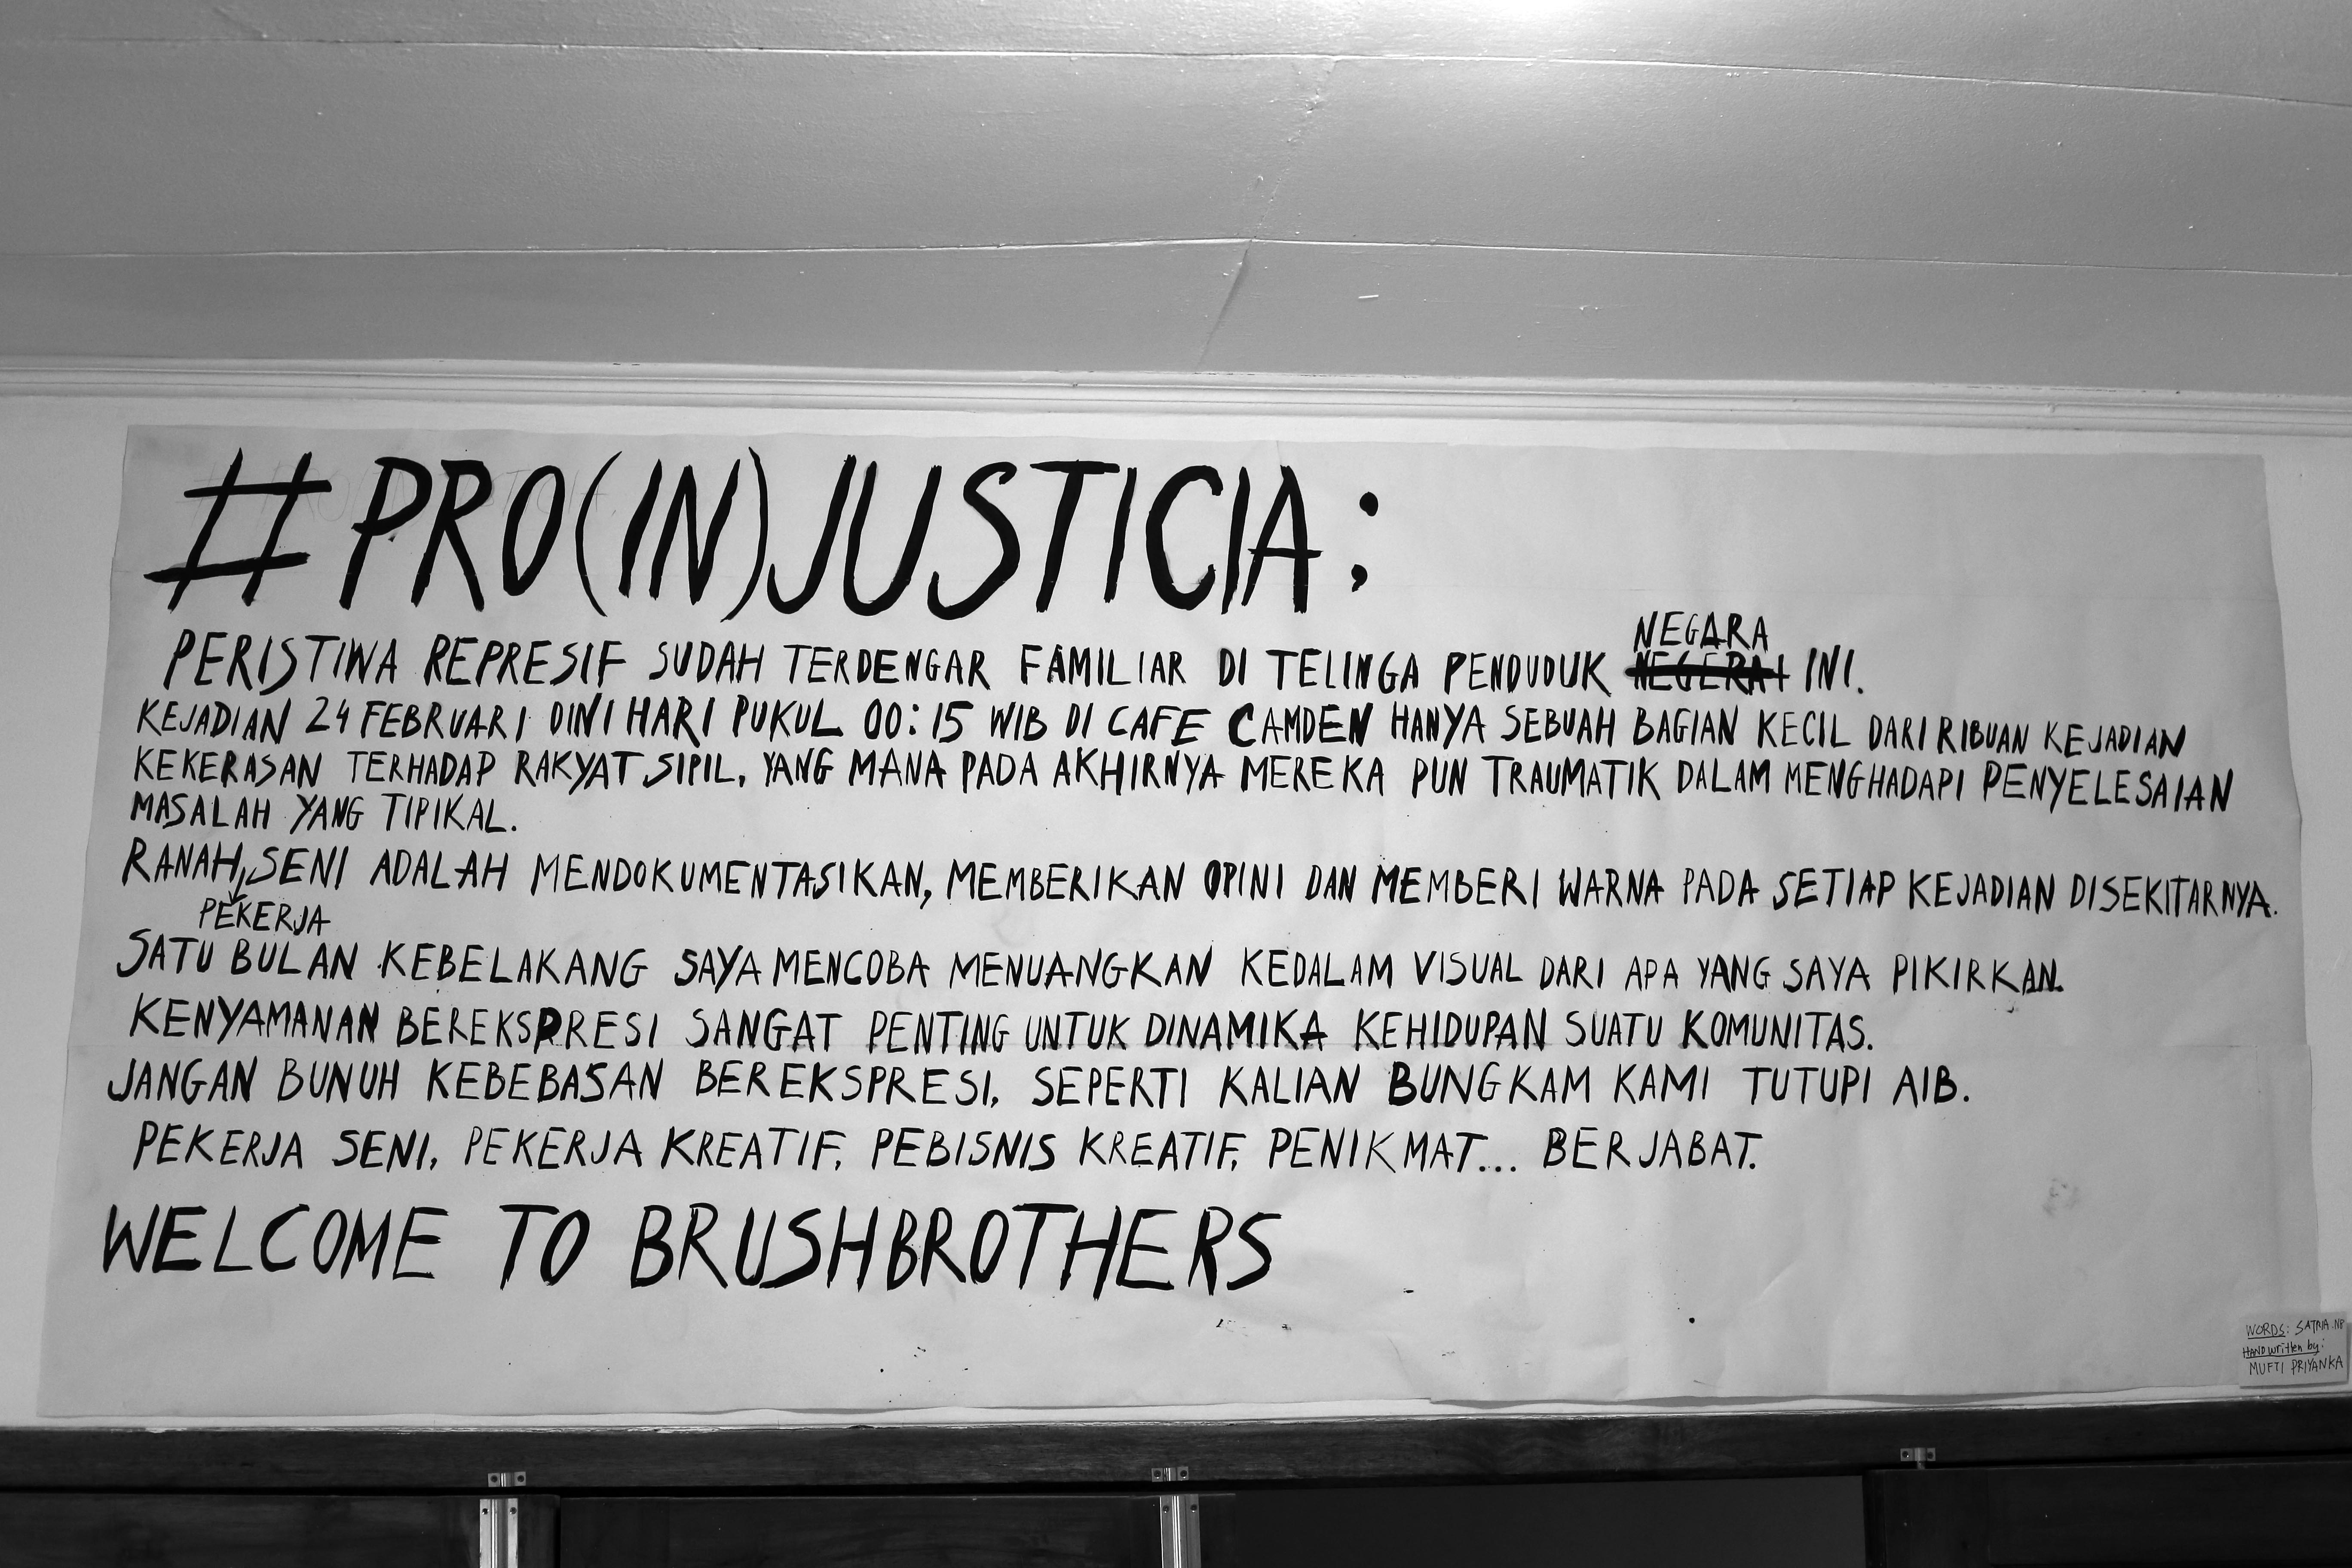 #PRO(IN)JUSTICIA;
NEGARA
PERISTIWA REPRESIF SUDAH TERDENGAR FAMILIAR DI TELINGA PENDUDUK INI.
KEJADIAN 24 FEBRUARI DINI HARI PUKUL 00:15 WIB DI CAFE CAMDEN HANYA SEBUAH BAGIAN KECIL DARI RIBUAN KEJADIAN
KEKERASAN TERHADAP RAKYAT SIPIL, YANG MANA PADA AKHIRNYA MEREKA PUN TRAUMATIK DALAM MENGHADAPI PENYELESAIAN
MASALAH YANG TIPIKAL.
RANAH, SENI ADALAH MENDOKUMENTASIKAN, MEMBERIKAN OPINI DAN MEMBERI WARNA PADA SETIAP KEJADIAN DISEKITARNYA.
PEKERJA
SATU BULAN KEBELAKANG SAYA MENCOBA MENUANGKAN KEDALAM VISUAL DARI APA YANG SAYA PIKIRKAN.
KENYAMANAN BEREKSPRESI SANGAT PENTING UNTUK DINAMIKA KEHIDUPAN SUATU KOMUNITAS.
JANGAN BUNUH KEBEBASAN BEREKSPRESI, SEPERTI KALIAN BUNGKAM KAMI TUTUPI AIB.
PEKERJA SENI, PEKERJA KREATIF, PEBISNIS KREATIF, PENIKMAT... BERJABAT.
WELCOME TO BRUSHBROTHERS
WORDS: SATRIA.NB
HANDwritten by:
MUFTI PRIYANKA